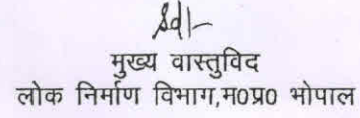 Sd/-
मुख्य वास्तुविद
लोक निर्माण विभाग,म०प्र० भोपाल